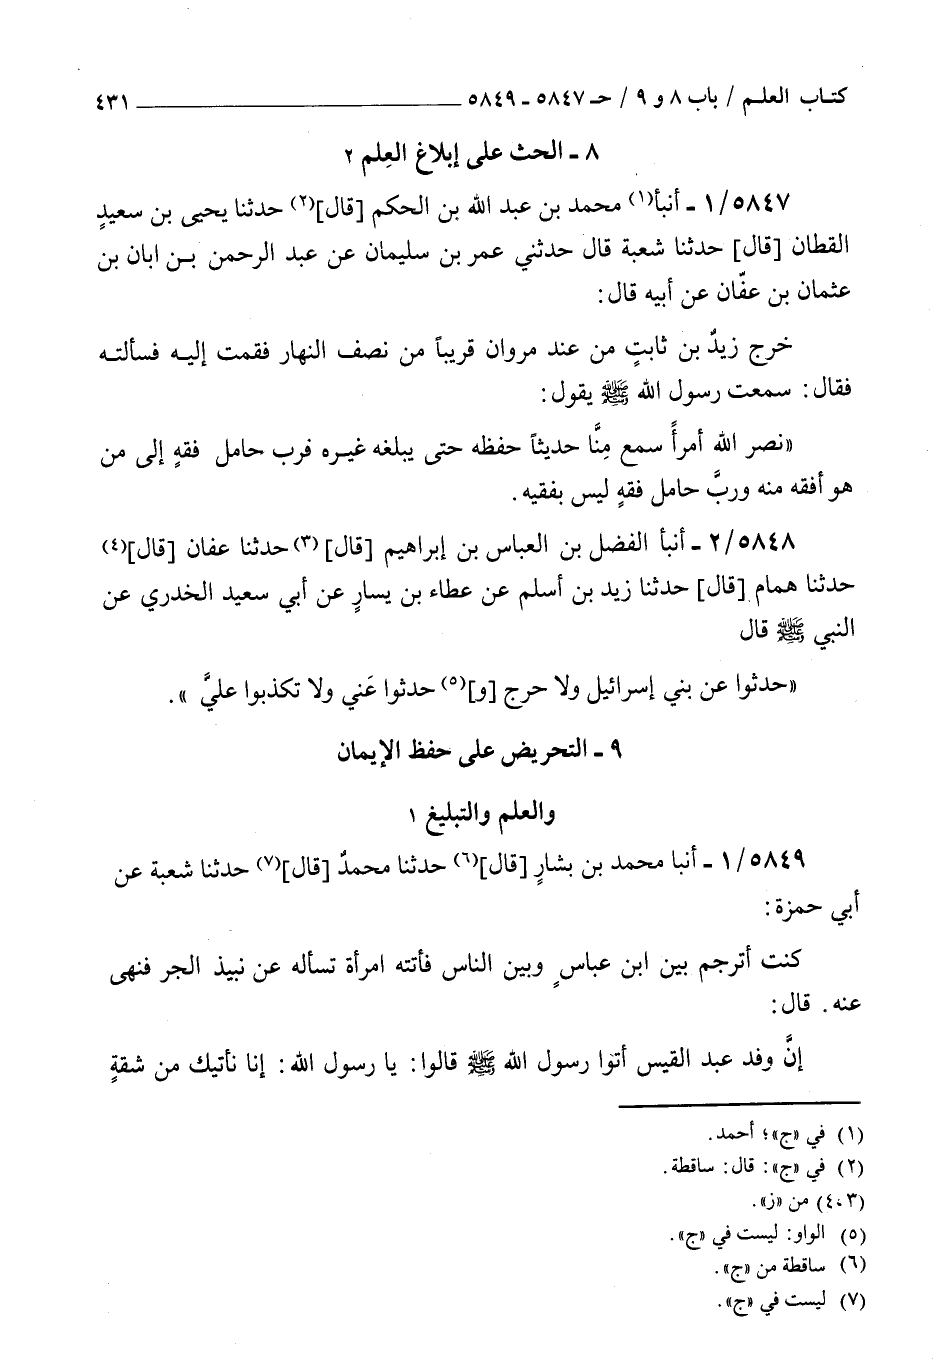 كتاب العلم / باب ٨ و ٩ / حـ ٥٨٤٧ ـ ٥٨٤٩ ــــــــ ٤٣١
٨ ـ الحث على إبلاغ العِلم ٢
١/٥٨٤٧ ـ أنبأ(١) محمد بن عبد الله بن الحكم [قال](٢) حدثنا يحيى بن سعيدٍ
القطان [قال] حدثنا شعبة قال حدثني عمر بن سليمان عن عبد الرحمن بـن ابان بن
عثمان بن عفّان عن أبيه قال:
خرج زيدٌ بن ثابتٍ من عند مروان قريباً من نصف النهار فقمت إليـه فسألتـه
فقال: سمعت رسول الله ﷺ يقول:
«نصر الله أمرأً سمع مِنَّا حديثاً حفظه حتى يبلغه غيـره فرب حامل فقهٍ إلى من
هو أفقه منه وربَّ حامل فقهٍ ليس بفقيه.
٢/٥٨٤٨ ـ أنبأ الفضل بن العباس بن إبراهيم [قال](٣) حدثنا عفان [قال](٤)
حدثنا همام [قال] حدثنا زيد بن أسلم عن عطاء بن يسارٍ عن أبي سعيد الخدري عن
النبي ﷺ قال
«حدثوا عن بني إسرائيل ولا حرج [و](٥) حدثوا عَني ولا تكذبوا عليَّ ».
٩ ـ التحريض على حفظ الإيمان
والعلم والتبليغ ١
١/٥٨٤٩ ـ أنبا محمد بن بشارٍ [قال](٦) حدثنا محمدٌ [قال](٧) حدثنا شعبة عن
أبي حمزة:
كنت أترجم بين ابن عباسٍ وبين الناس فأتته امرأة تسأله عن نبيذ الجر فنهى
عنه. قال:
إنَّ وفد عبد القيس أتوا رسول الله ﷺ قالوا: يا رسول الله: إنا نأتيك من شقةٍ
(١) في «ج»؛ أحمد.
(٢) في «ج»: قال: ساقطة.
(٣،٤) من «ز».
(٥) الواو: ليست في «ج».
(٦) ساقطة من «ج».
(٧) ليست في «ج».